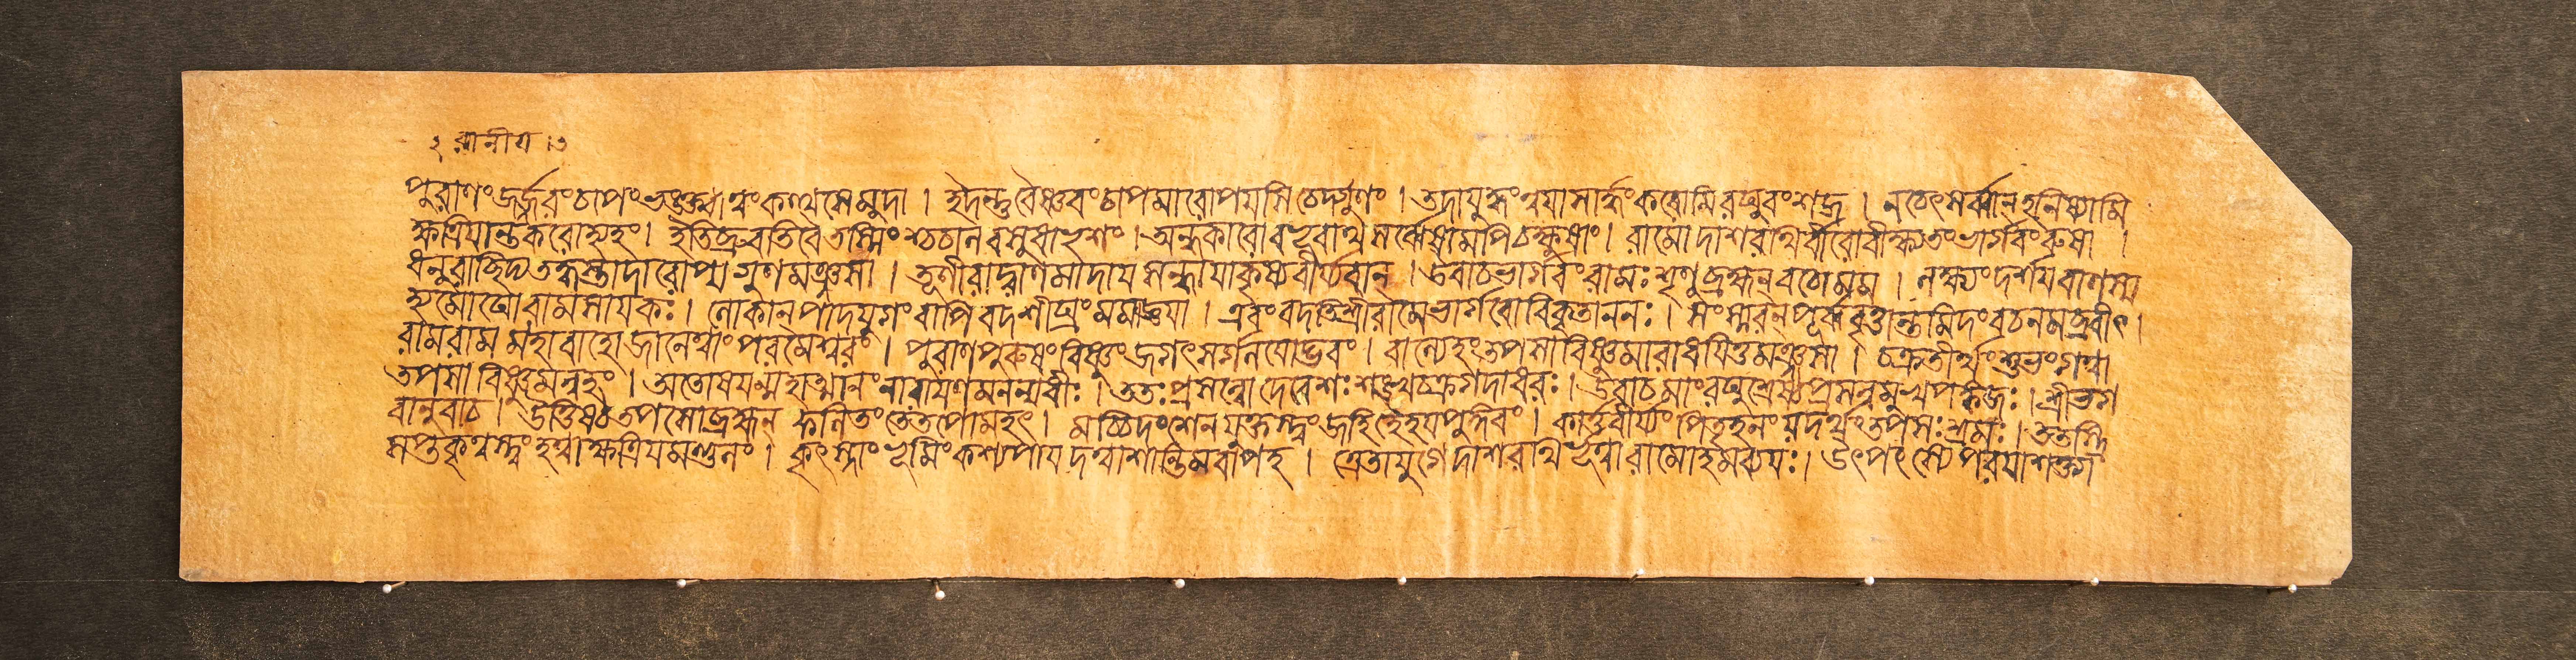 পুরাণংজর্জরংচাপংভঙ্ক্ত্বাত্বংকত্থসেমুদা । ইদন্তুবৈষ্ণবংচাপমারোপয়সিচেদ্গুণং । তদাযুদ্ধংত্বয়াসার্দ্ধংকরোমিরঘুবংশজ । নচেৎসর্ব্বান্হনিষ্যামি
ক্ষত্রিয়ান্তকরোহ্যহং। ইতিব্রুবতিবৈতস্মিংশ্চচালবসুধাভৃশং । অন্ধকারোবভূবাথসর্ব্বেষামপিচক্ষুষাং। রামোদাশরথির্বীরোবীক্ষ্যতংভার্গবংরুষা ।
ধনুরাচ্ছিদ্যতদ্ধস্তাদারোপ্যগুণমঞ্জসা । তূণীরাদ্বাণমাদায়সন্ধায়াকৃষ্যবীর্য্যবান্ । উবাচভার্গবংরামঃশৃণুব্রহ্মন্বচোমম । লক্ষ্যংদর্শয়বাণস্য
হ্যমোঘোরামসায়কঃ। লোকান্পাদযুগংবাপিবদশীঘ্রংমমাজ্ঞয়া । এবংবদতিশ্রীরামেভার্গবোবিকৃতাননঃ। সংস্মরন্পূর্ব্ববৃত্তান্তমিদংবচনমব্রবীৎ।
রামরামমহাবাহোজানেত্বাংপরমেশ্বরং । পুরাণপুরুষংবিষ্ণুংজগৎসর্গলয়োদ্ভবং । বাল্যেহংতপসাবিষ্ণুমারাধয়িতুমঞ্জসা । চক্রতীর্থংশুভংগত্বা
তপসাবিষ্ণুমন্বহং । অতোষয়ন্মহাত্মানংনারায়ণমনন্যধীঃ। ততঃপ্রসন্নোদেবেশঃশঙ্খচক্রগদাধরঃ। উবাচমাংরঘুশ্রেষ্ঠপ্রসন্নমুখপঙ্কজঃ। শ্রীভগ
বানুবাচ । উত্তিষ্ঠতপসোব্রহ্মন্ ফলিতংতেতপোমহৎ। মচ্চিদংশেনযুক্তস্ত্বংজহিহৈহয়পুঙ্গবং । কার্ত্তবীর্য্যংপিতৃহনংযদর্থংতপসঃশ্রমঃ। ততস্ত্রি
সপ্তকৃত্বস্ত্বংহত্বাক্ষত্রিয়মণ্ডলং । কৃৎস্নাংভূমিংকশ্যপায়দত্বাশান্তিমবাপহ । ত্রেতাযুগেদাশরথির্ভূত্বারামোহমব্যয়ঃ। উৎপৎস্যেপরয়াশক্ত্যা